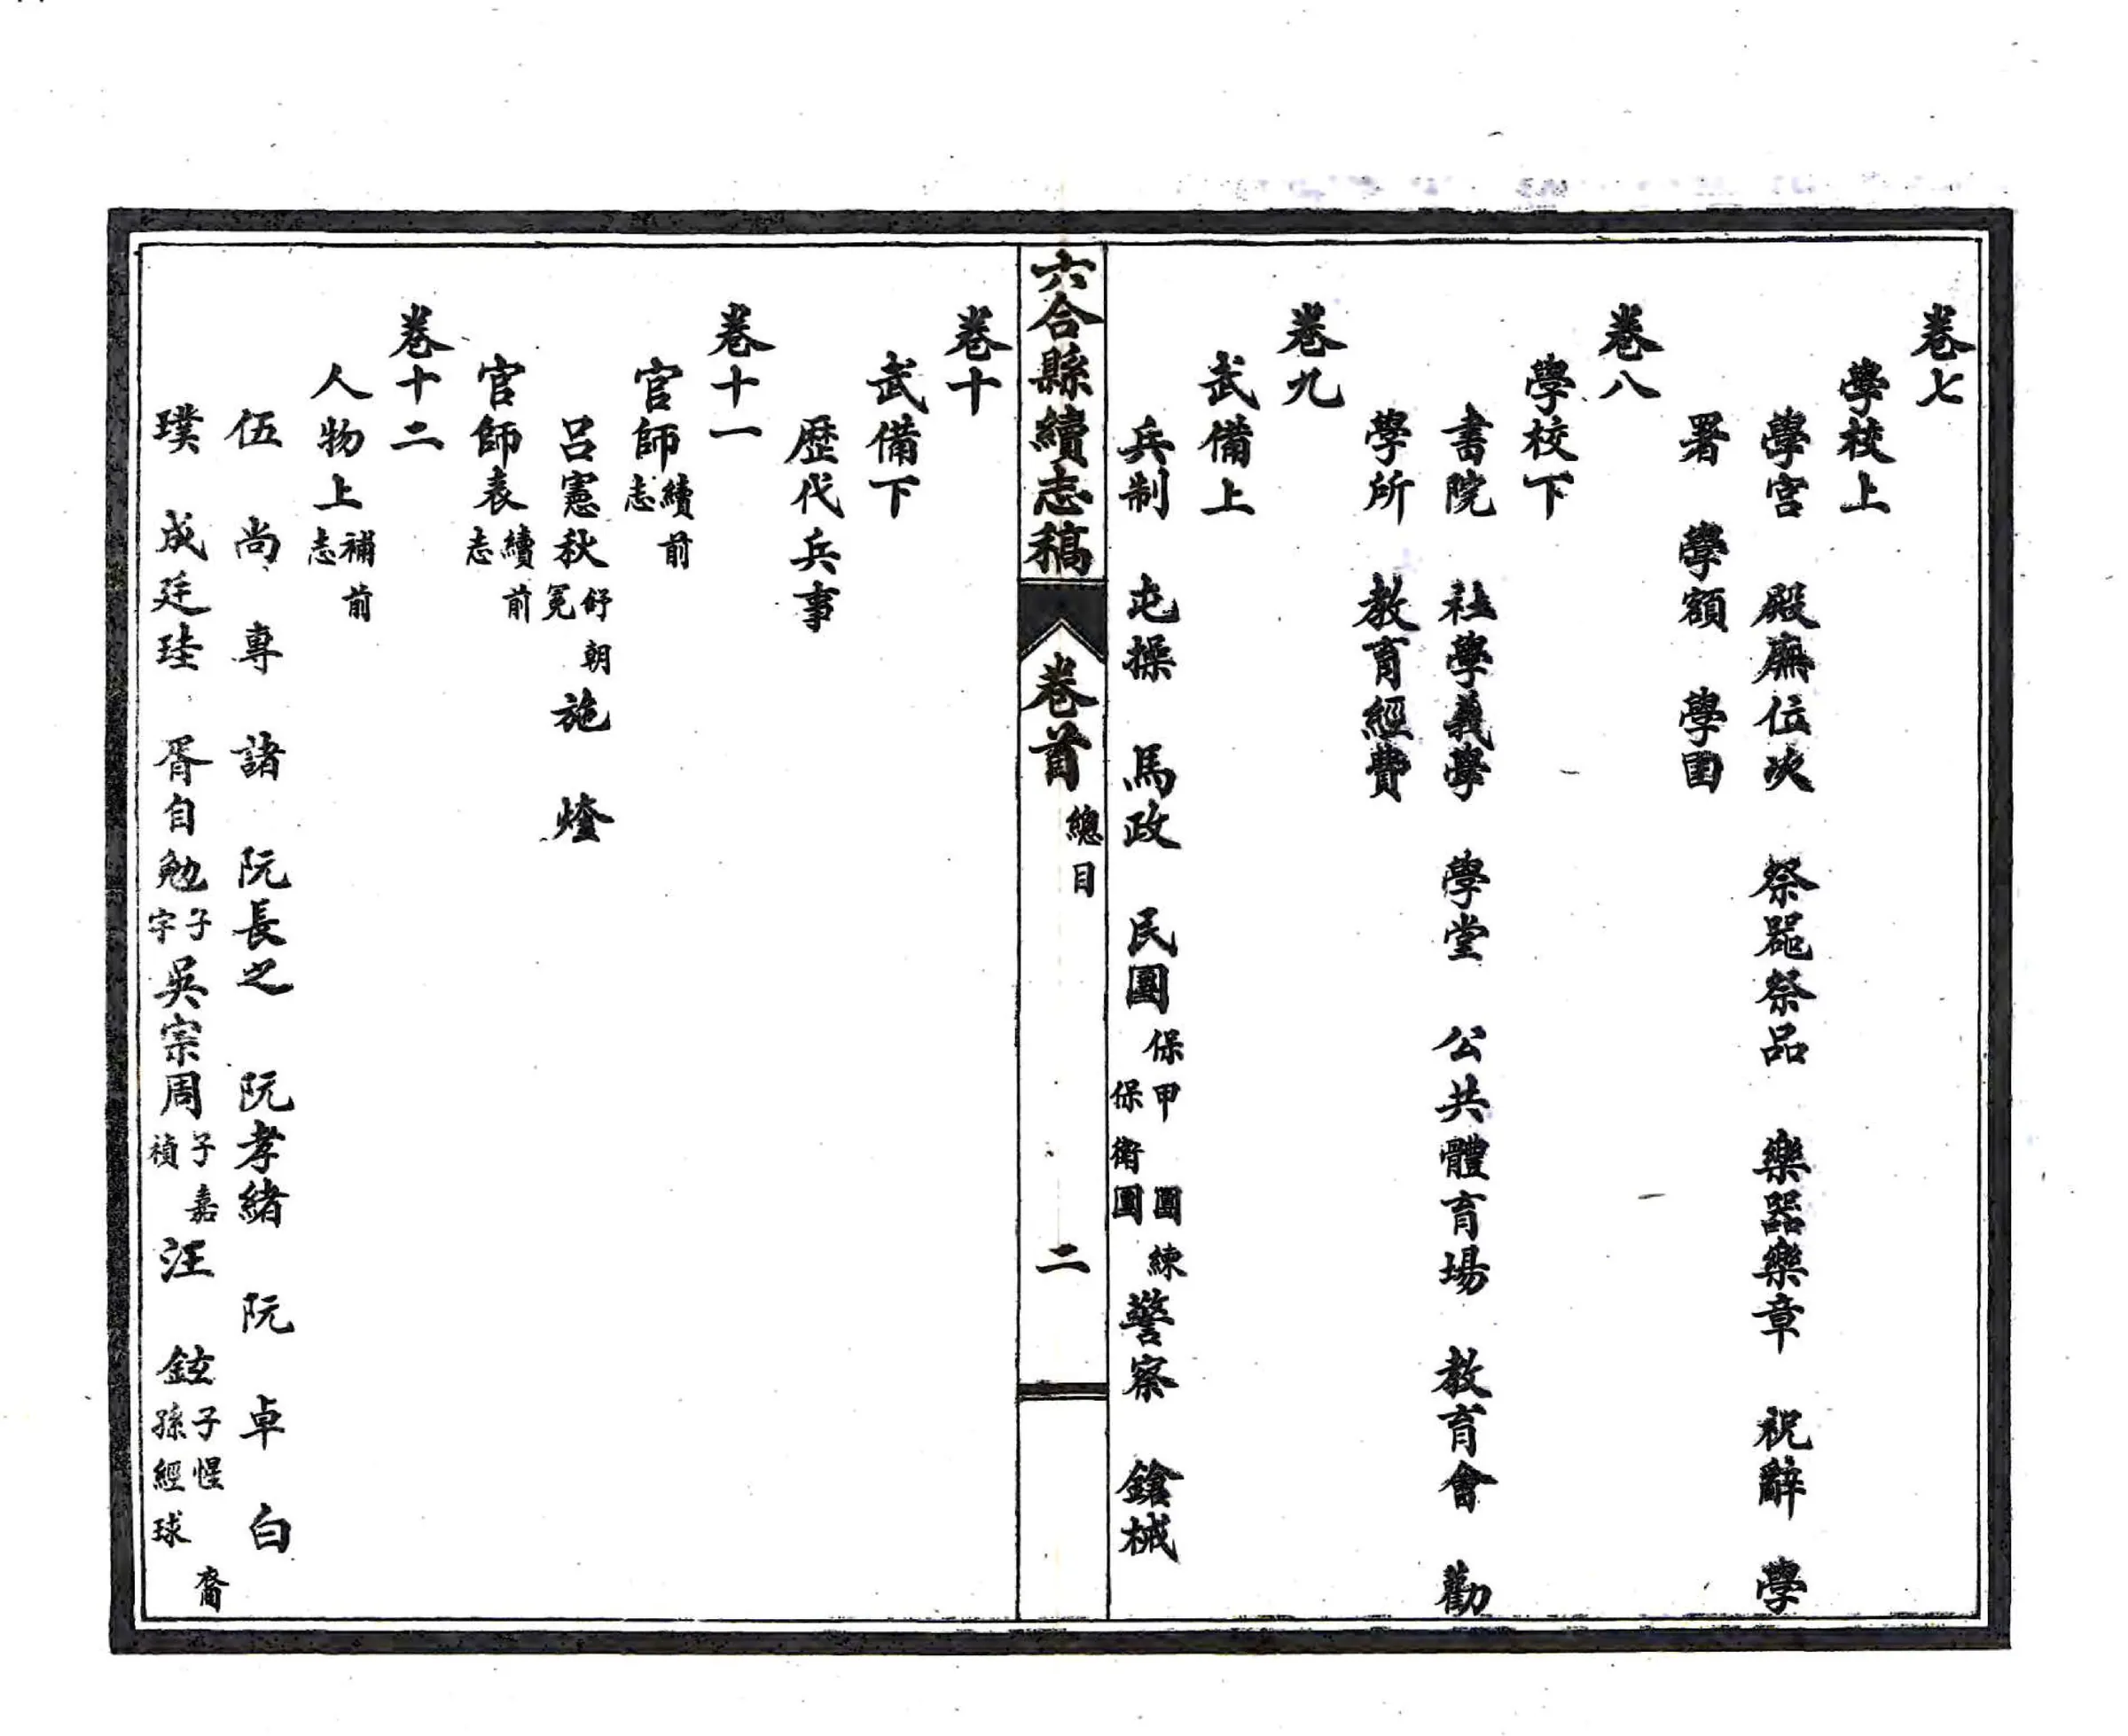 卷七
學校上
學宮　殿廡位次　祭器祭品　樂器樂章　祝辭　學
署　學額　學田
卷八
學校下
書院　社學義學　學堂　公共體育場　教育會　勸
學所　教育經費
卷九
武備上
兵制　屯操　馬政　民團保甲　團練保衛團　警察　鎗械
六合縣續志稿　卷首　總目　二
卷十
武備下
歷代兵事
卷十一
官師續前志
呂憲秋舒朝冕　施　燈
官師表續前志
卷十二
人物上補前志
伍　尚　專　諸　阮長之　阮孝緒　阮　卓　白
璞　成廷珪　胥自勉子宇　吳宗周子嘉禎　汪　鉉子惺裔孫經球